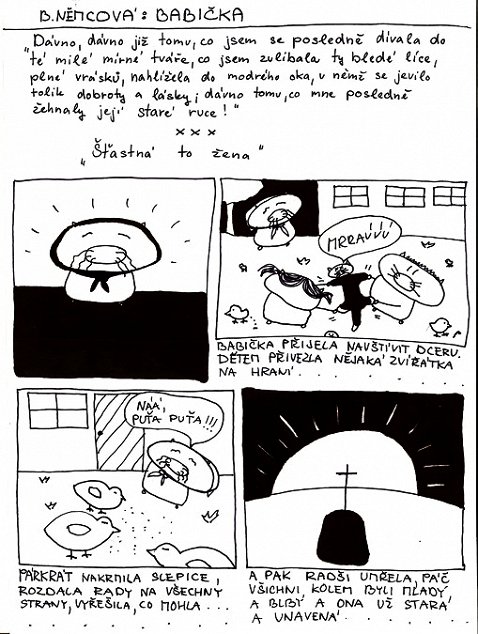 B. NĚMCOVÁ: BABIČKA
"Dávno, dávno již tomu, co jsem se posledně dívala do
té milé mírné tváře, co jsem zulíbala ty bledé líce,
plné vrásků, nahlížela do modrého oka, v němž se jevilo
tolik dobroty a lásky; dávno tomu, co mne posledně
žehnaly její staré ruce!"
x x x
"Šťastná to žena"
MRRAUÚÚ
BABIČKA PŘIJELA NAVŠTÍVIT DCERU.
DĚTEM PŘIVEZLA NĚJAKÁ ZVÍŘÁTKA
NA HRANÍ.......
NÁÁ,
PUŤA PUŤA!!!
PÁRKRÁT NAKRMILA SLEPICE,
ROZDALA RADY NA VŠECHNY
STRANY, VYŘEŠILA, CO MOHLA...
A PAK RADŠI UMŘELA, PÁČ
VŠICHNI KOLEM BYLI MLADÝ
A BLBÝ A ONA UŽ STARÁ
A UNAVENÁ.......